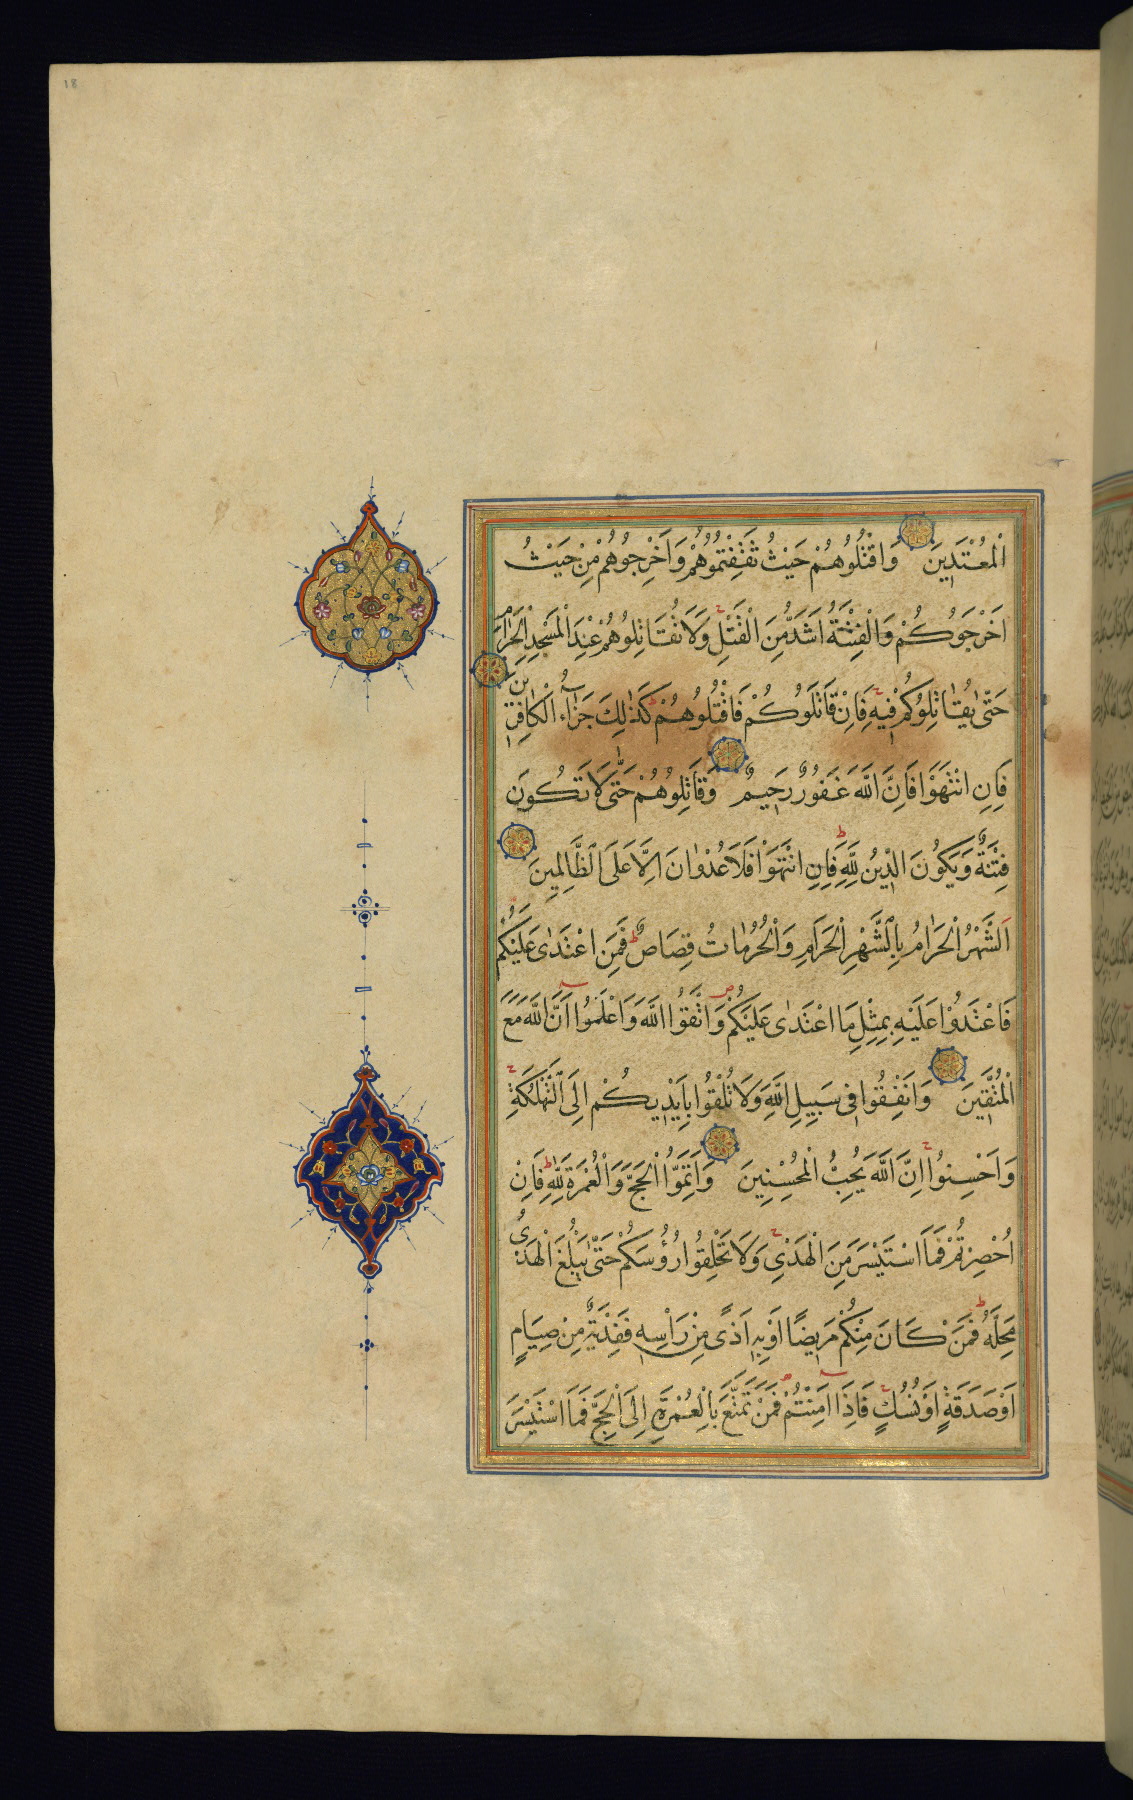 18
اَلْمُعْتَدِينَ وَاقْتُلُوهُمْ حَيْثُ ثَقِفْتُمُوهُمْ وَاَخْرِجُوهُمْ مِنْ حَيْثُ
اَخْرَجُوكُمْ وَالْفِتْنَةُ اَشَدُّ مِنَ الْقَتْلِ وَلَا تُقَاتِلُوهُمْ عِنْدَ الْمَسْجِدِ الْحَرَامِ
حَتّٰى يُقَاتِلُوكُمْ فِيهِ فَاِنْ قَاتَلُوكُمْ فَاقْتُلُوهُمْ كَذٰلِكَ جَزَاءُ الْكَافِرِينَ
فَاِنِ انْتَهَوْا فَاِنَّ اللّٰهَ غَفُورٌ رَحِيمٌ وَقَاتِلُوهُمْ حَتّٰى لَا تَكُونَ
فِتْنَةٌ وَيَكُونَ الدِّينُ لِلّٰهِ فَاِنِ انْتَهَوْا فَلَا عُدْوَانَ اِلَّا عَلَى الظَّالِمِينَ
اَلشَّهْرُ الْحَرَامُ بِالشَّهْرِ الْحَرَامِ وَالْحُرُمَاتُ قِصَاصٌ فَمَنِ اعْتَدٰى عَلَيْكُمْ
فَاعْتَدُوا عَلَيْهِ بِمِثْلِ مَا اعْتَدٰى عَلَيْكُمْ وَاتَّقُوا اللّٰهَ وَاعْلَمُوا اَنَّ اللّٰهَ مَعَ
الْمُتَّقِينَ وَاَنْفِقُوا فِى سَبِيلِ اللّٰهِ وَلَا تُلْقُوا بِاَيْدِيكُمْ اِلَى التَّهْلُكَةِ
وَاَحْسِنُوا اِنَّ اللّٰهَ يُحِبُّ الْمُحْسِنِينَ وَاَتِمُّوا الْحَجَّ وَالْعُمْرَةَ لِلّٰهِ فَاِنْ
اُحْصِرْتُمْ فَمَا اسْتَيْسَرَ مِنَ الْهَدْىِ وَلَا تَحْلِقُوا رُؤُسَكُمْ حَتّٰى يَبْلُغَ الْهَدْىُ
مَحِلَّهُ فَمَنْ كَانَ مِنْكُمْ مَرِيضًا اَوْ بِهِ اَذًى مِنْ رَاْسِهِ فَفِدْيَةٌ مِنْ صِيَامٍ
اَوْ صَدَقَةٍ اَوْ نُسُكٍ فَاِذَا اَمِنْتُمْ فَمَنْ تَمَتَّعَ بِالْعُمْرَةِ اِلَى الْحَجِّ فَمَا اسْتَيْسَرَ